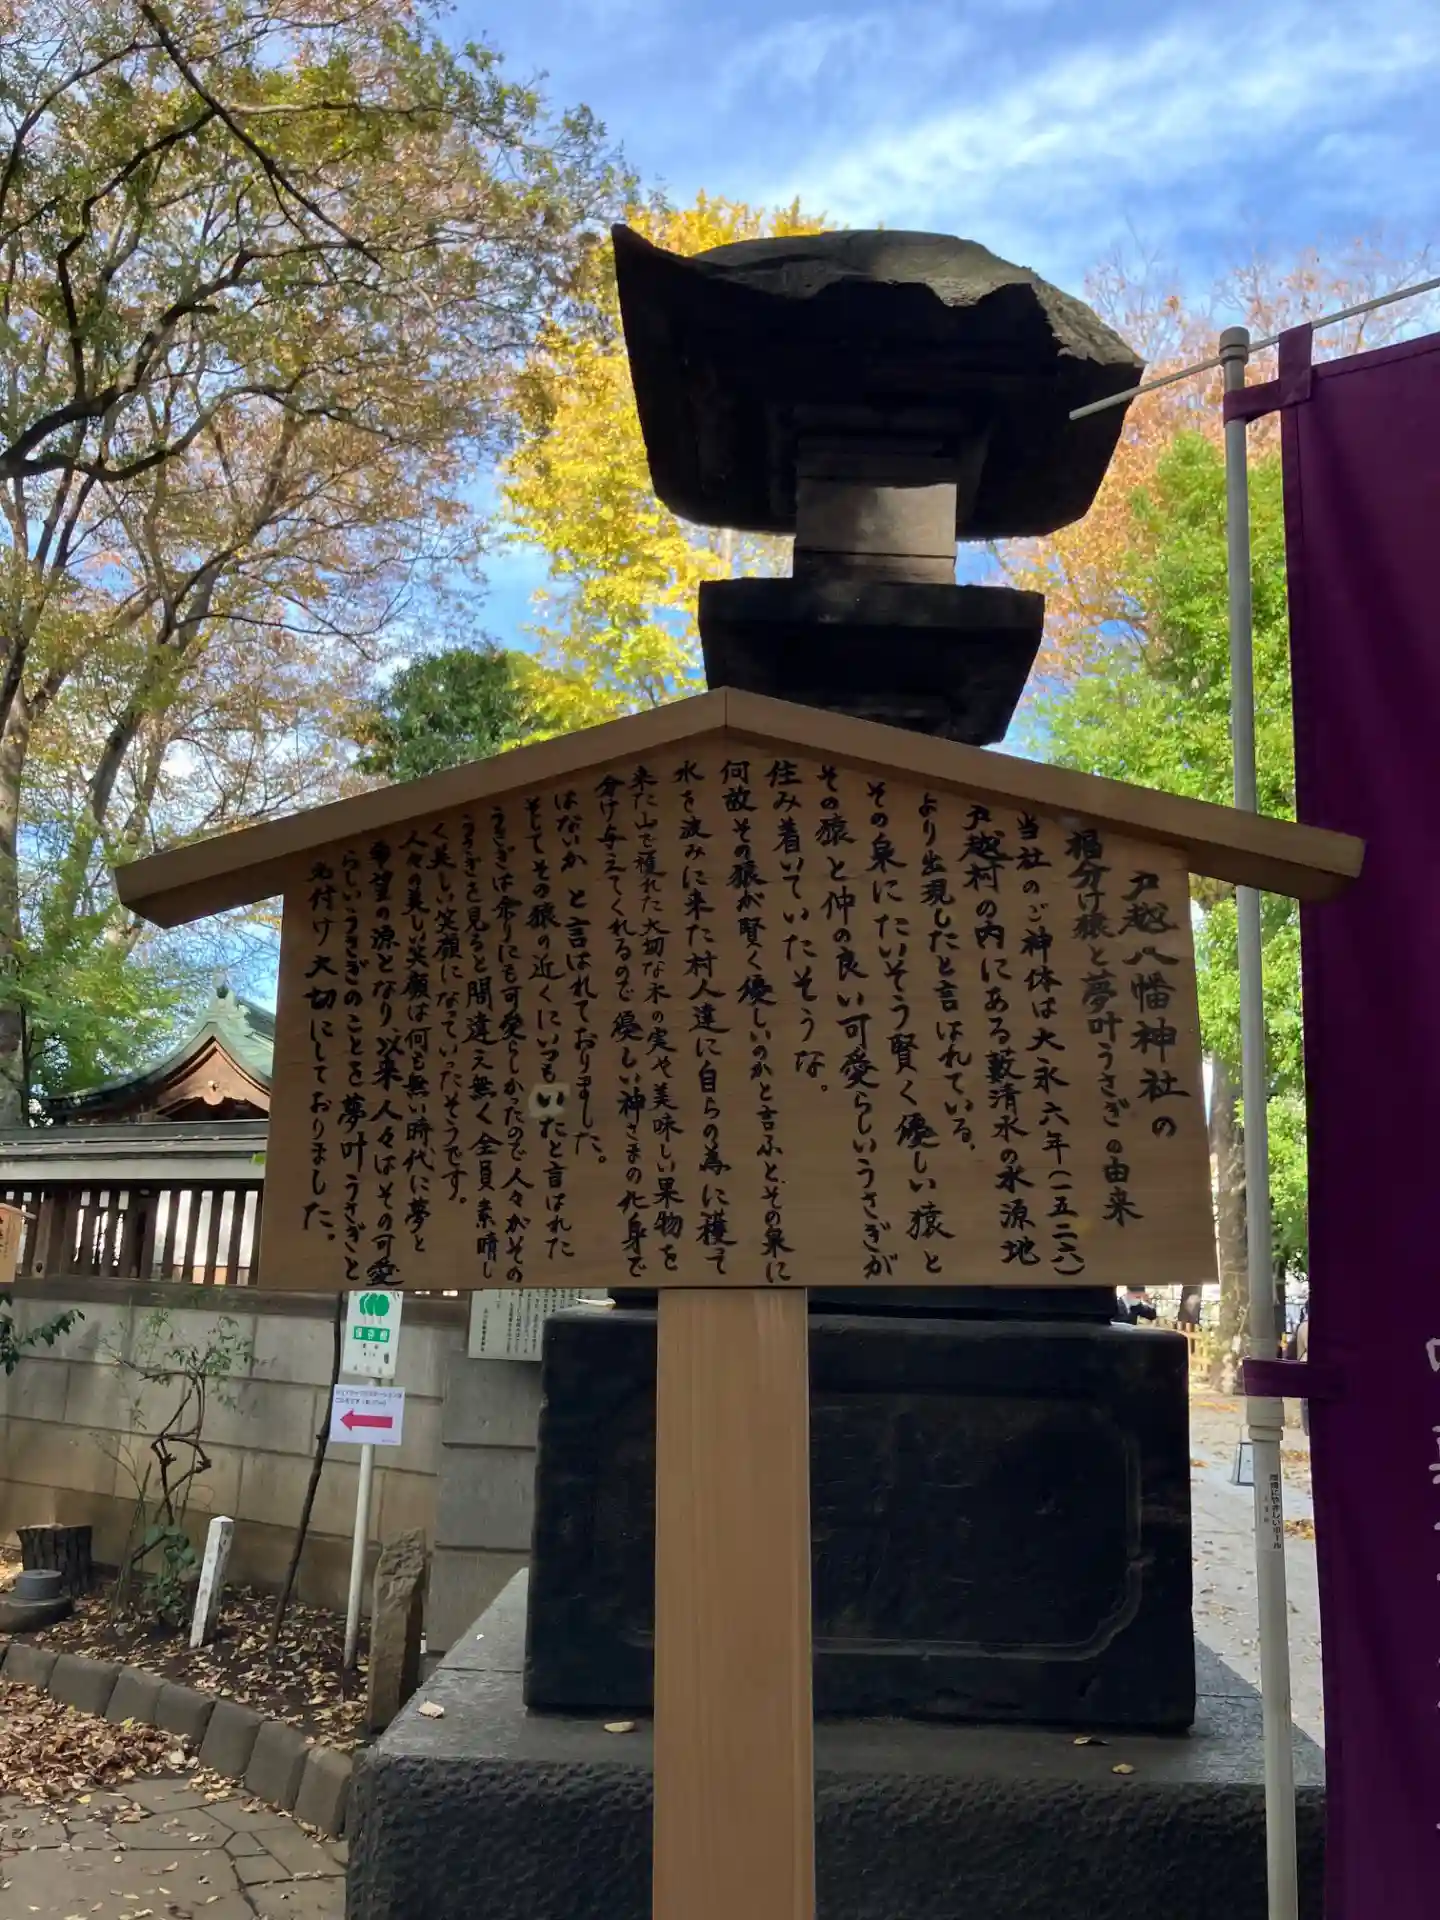 戸越八幡神社の
福分け猿と夢叶うさぎの由来
当社のご神体は大永六年(一五二六)
戸越村の内にある藪清水の水源地
より出現したと言はれている。
その泉にたいそう賢く優しい猿と
その猿と仲の良い可愛らしいうさぎが
住み着いていたそうな。
何故その猿が賢く優しいのかと言ふとその泉に
水を汲みに来た村人達に自らの為に獲って
来た山で獲れた大切な木の実や美味しい果物を
分け与えてくれるので優しい神さまの化身で
はないか と言はれておりました。
そしてその猿の近くにいつもいたと言はれた
うさぎは余りにも可愛らしかったので人々がその
うさぎを見ると間違え無く全員素晴し
く美しい笑顔になっていったそうです。
人々の美しい笑顔は何も無い時代に夢と
希望の源となり以来人々はその可愛
らしいうさぎのことを夢叶うさぎと
名付け大切にしておりました。
保存樹
環境にやさしいポール